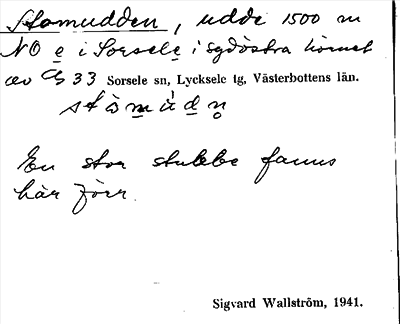 Stomudden, udde 1500 m
NO e i Sorsele i sydöstra hörnet
av 33 Sorsele sn, Lycksele tg, Västerbottens län.
En stor stubbe fanns
här förr.
Sigvard Wallström, 1941.